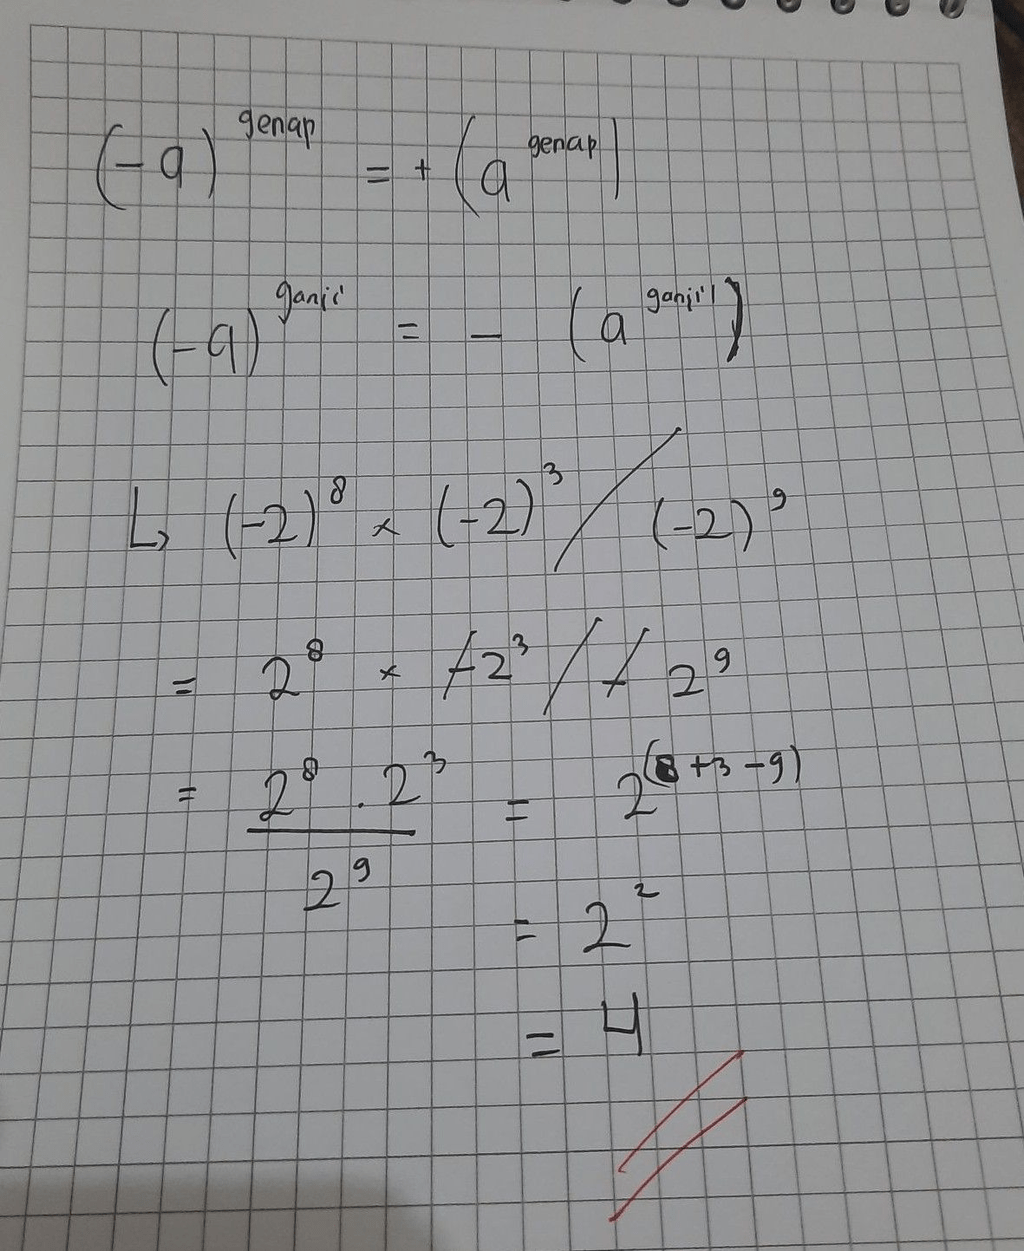 (-a)^genap = + (a^genap)
(-a)^ganjil = - (a^ganjil)
↳ (-2)^8 × (-2)^3 / (-2)^9
= 2^8 × -2^3 / - 2^9
= 2^8 . 2^3 / 2^9 = 2^(8+3-9)
= 2^2
= 4